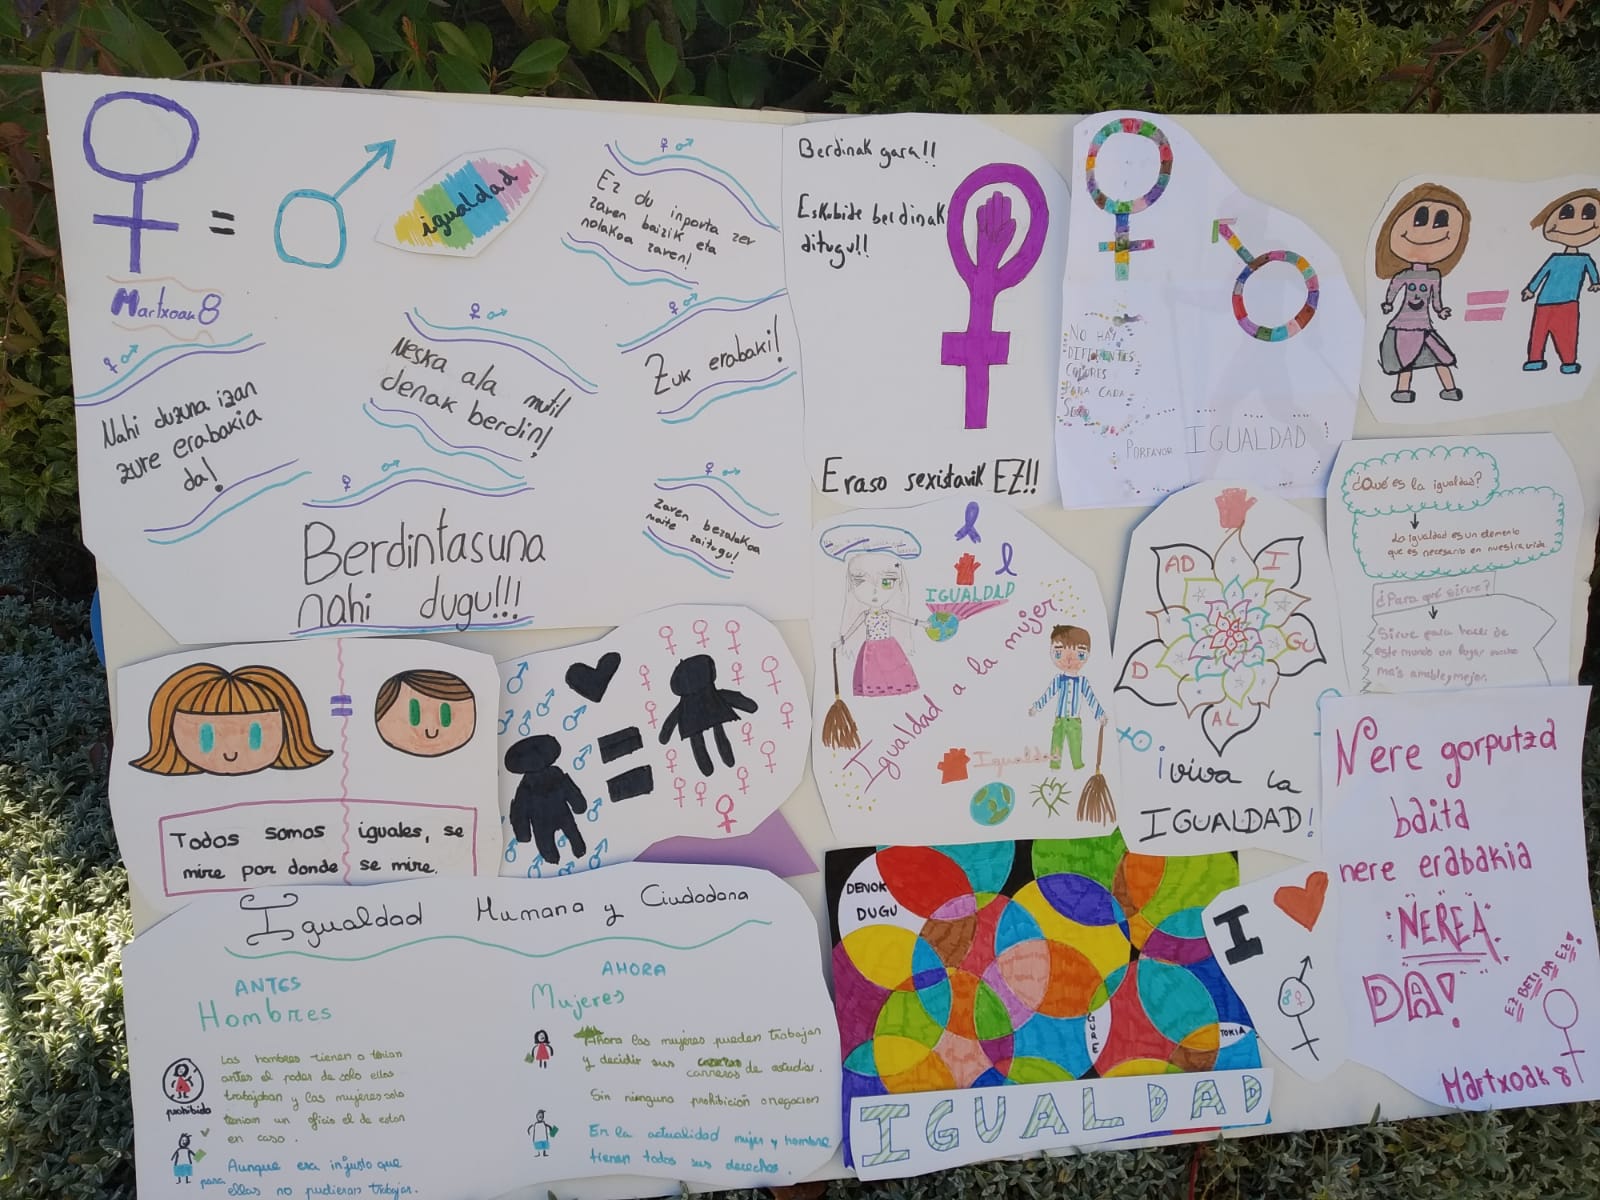 igualdad
Martxoak 8
Ez du inporta zer
zaren baizik eta
nolakoa zaren!
Nahi duzuna izan
zure erabakia
da!
Neska ala mutil
denak berdin!
Zuk erabaki!
Berdintasuna
nahi dugu!!!
Zaren bezalakoa
maite
zaitugu!
Berdinak gara!!
Eskubide berdinak
ditugu!!
Eraso sexistarik EZ!!
NO HAY
DIFERENTES
COLORES
PARA CADA
SEXO
PORFAVOR IGUALDAD
¿Qué es la igualdad?
La igualdad es un elemento
que es necesario en nuestra vida
¿Para qué sirve?
Sirve para hacer de
este mundo un lugar mucho
más amable y mejor.
Todos somos iguales, se
mire por donde se mire.
IGUALDAD
Igualdad a la mujer
Igualdad
I
GU
AL
D
AD
¡viva la
IGUALDAD!
Nere gorputza
baita
nere erabakia
NEREA
DA!
EZ BETI DA EZ!
Martxoak 8
Igualdad Humana y Ciudadana
ANTES
Hombres
prohibido
Los hombres tienen o tenian
antes el poder de solo ellos
trabajaban y las mujeres solo
teniam un oficio el de estar
en casa.
Aunque era injusto que
para ellas no pudieran trabajar.
AHORA
Mujeres
Ahora las mujeres pueden trabajar
y decidir sus
carreras de estudio.
Sin ninguna prohibición o negacion
En la actualidad mujer y hombre
tienen todos sus derechos.
DENOK
DUGU
GURE
TOKIA
IGUALDAD
I